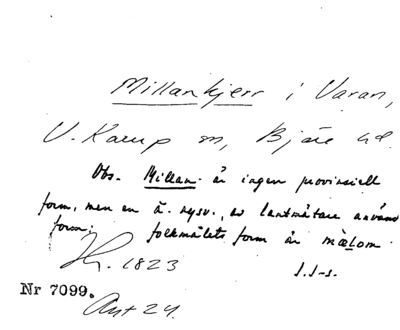 Millankjerr i Varan,
V. Karup sn, Bjäre hd.
Obs. Millan- är ingen provinsiell
form, men en ä. nysv., av lantmätare använd
form; folkmålets form är mœlom
Hr. 1823
S.I-s.
Nr 7099.
Ant 24.